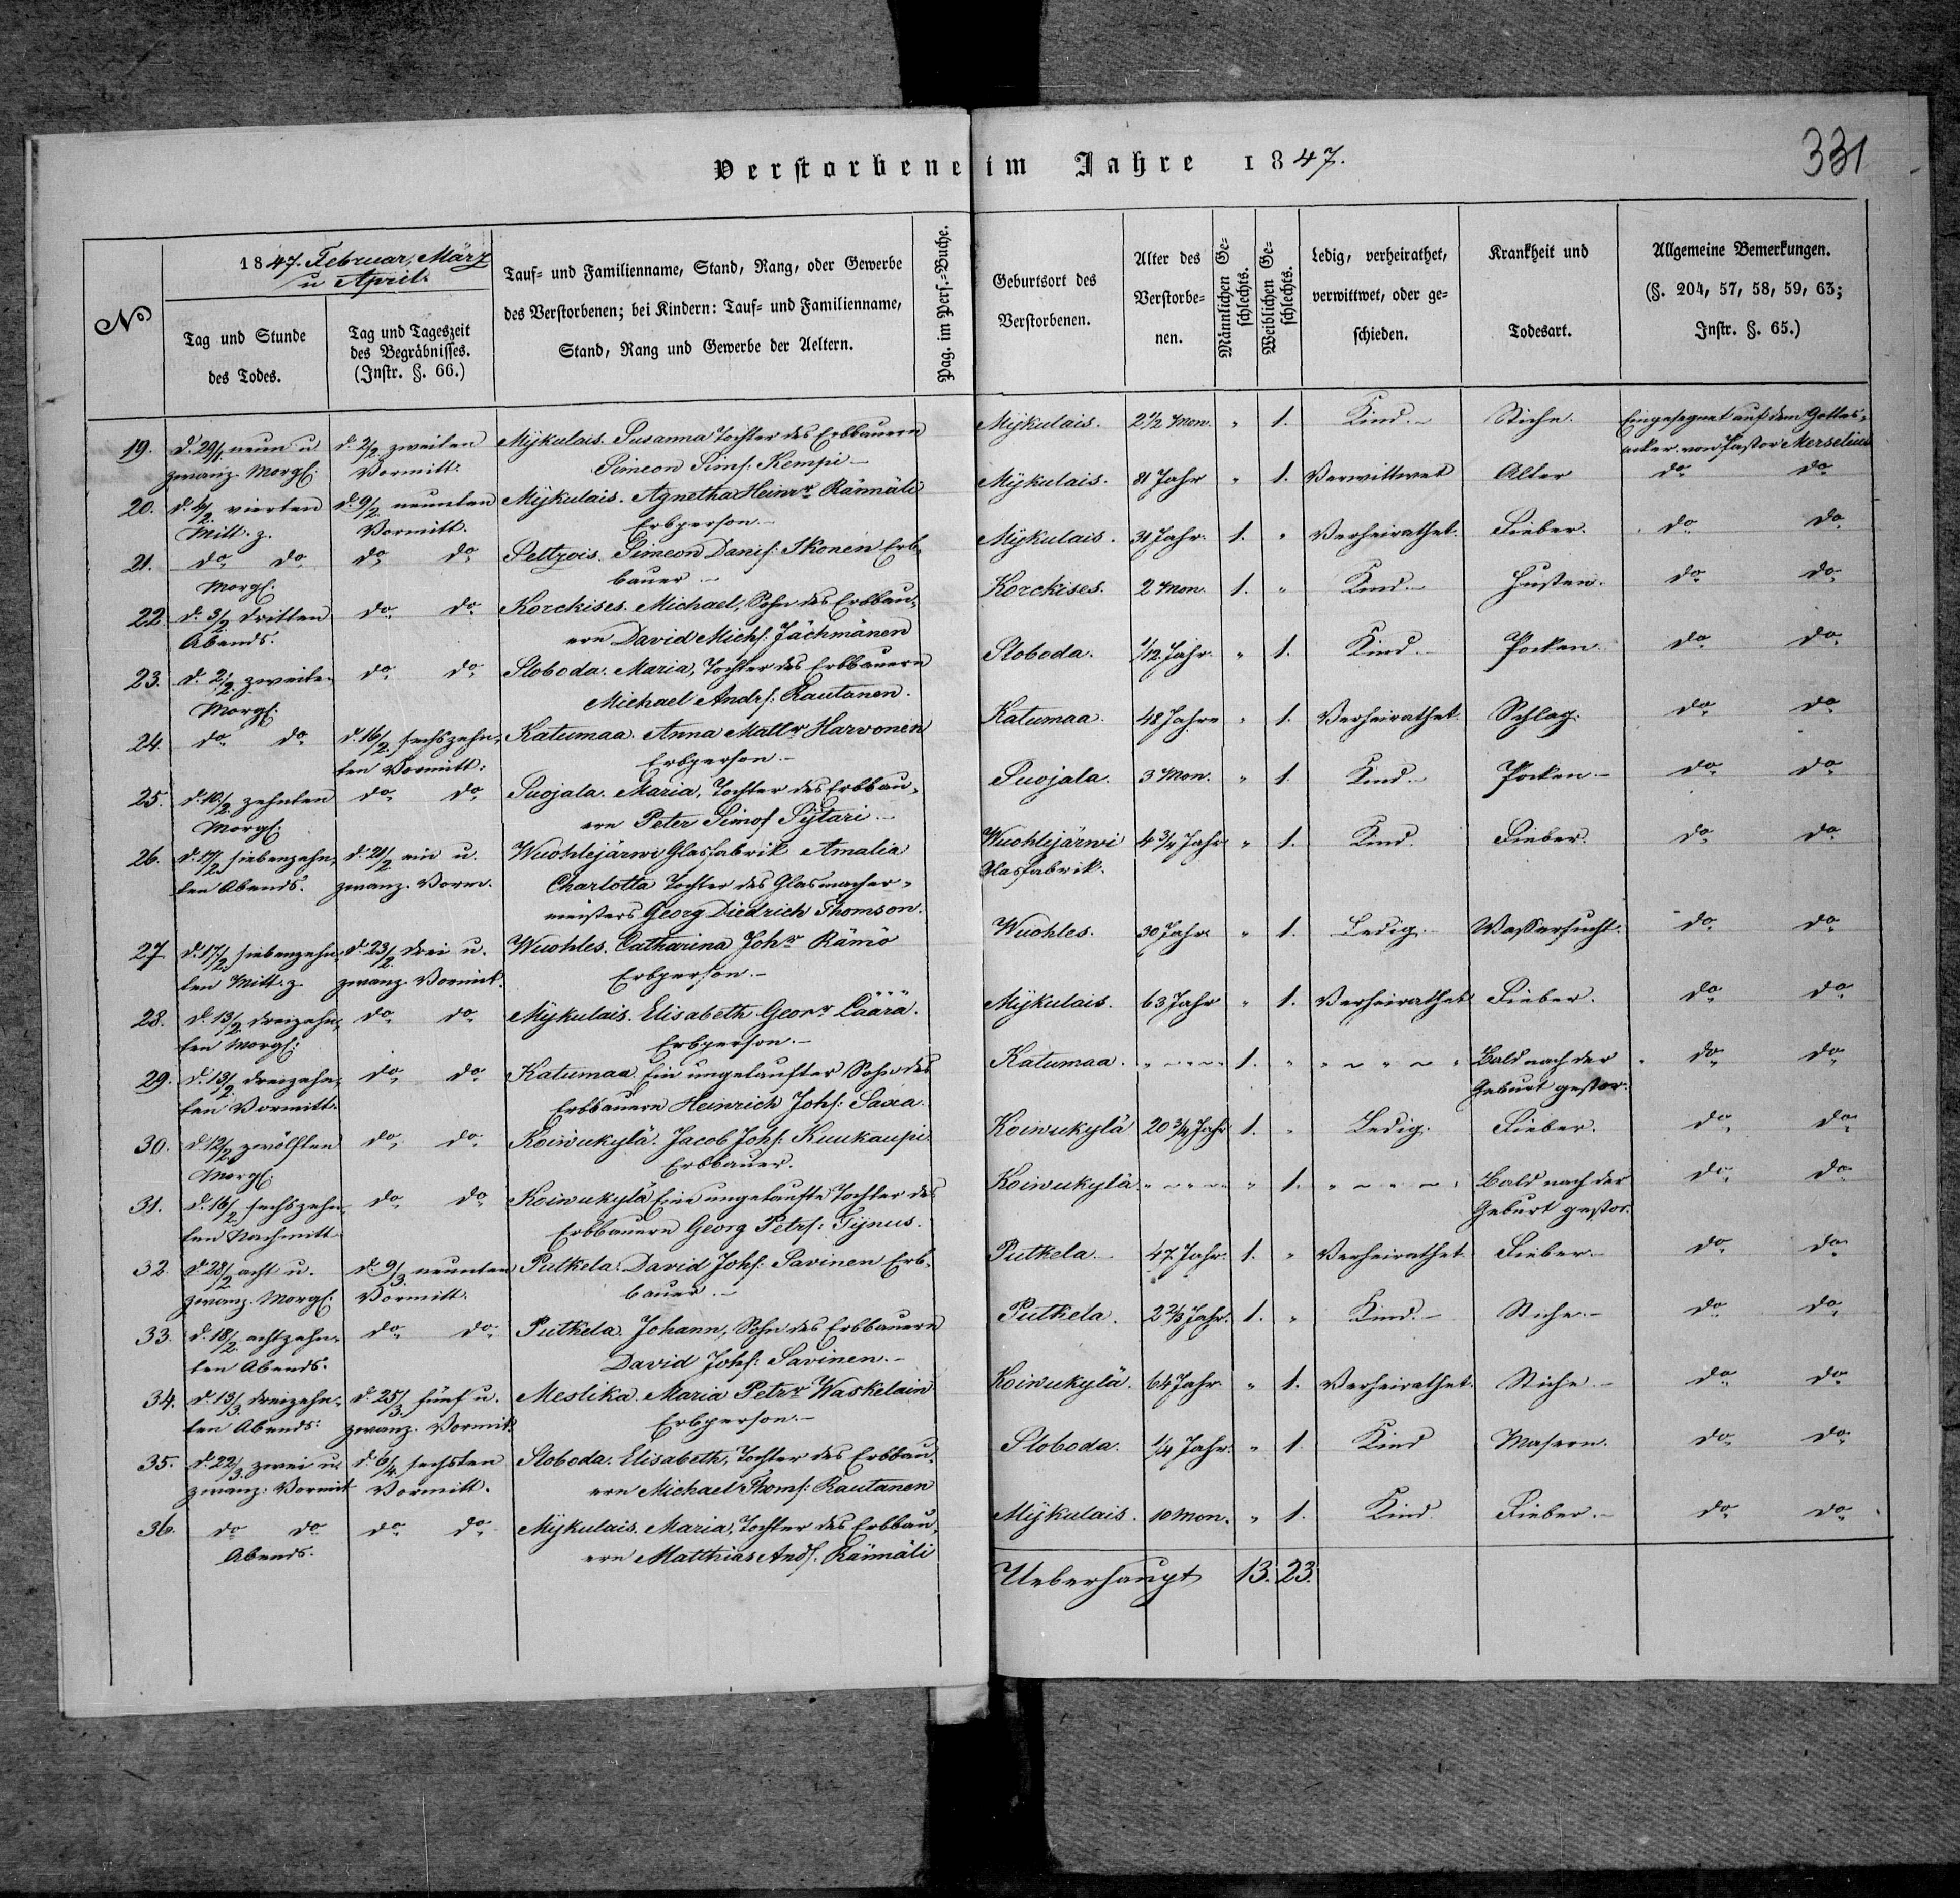 Verstorbene im Jahre 1847.
331
No
1847. Februar, März
u April.
Tag und Stunde
des Todes.
Tag und Tageszeit
des Begräbnisses.
(Instr. §. 66.)
Tauf- und Familienname, Stand, Rang, oder Gewerbe
des Verstorbenen; bei Kindern: Tauf- und Familienname,
Stand, Rang und Gewerbe der Aeltern.
Pag. im Pers.-Buche.
Geburtsort des
Verstorbenen.
Alter des
Verstorbe-
nen.
Männlichen Ge-
schlechts.
Weiblichen Ge-
schlechts.
Ledig, verheirathet,
verwittwet, oder ge-
schieden.
Krankheit und
Todesart.
Allgemeine Bemerkungen.
(§. 204, 57, 58, 59, 63;
Instr. §. 65.)
19. d. 29/1. neun u d. 2/2 zweiten Mykulais. Susanna Tochter des Erbbauern Mykulais. 2 1/2 Mon. " 1. Kind. Stiche. Eingesegnet auf dem Gottes-
zwanz. Morgs: Vormitt. Simeon Sims: Kempi acker von Pastor Merselius
20. d. 4/2. vierten d. 9/2. neunten Mykulais. Agnetha Heinr. Rännäli Mykulais. 81 Jahr " 1. Verwittwet Alter do do
Mitt. z. Vormitt. Erbperson.
21. do do do do Peltzois. Simeon Danis: Ikonen Erb- Mykulais. 31 Jahr. 1. " Verheirathet. Fieber. do do
Morgs: bauer
22. d. 3/2 dritten do do Korckises. Michael, Sohn des Erbbau- Korckises. 2 Mon. 1. " Kind. Husten. do do
Abends. ern David Michs: Jächmänen
23. d. 2/2. zweiten do do Sloboda. Maria, Tochter des Erbbauern Sloboda. 1/12 Jahr. " 1. Kind. Pocken. do do
Morgs: Michael Andrs: Rautanen.
24 do do d. 16/2. sechszehn- Katumaa. Anna Mattr Harvonen Katumaa. 48 Jahre " 1. Verheirathet. Schlag. do do
ten Vormitt: Erbperson.
25. d. 10/2. zehnten do do Suojala. Maria, Tochter des Erbbau- Suojala. 3 Mon. " 1. Kind. Pocken. do do
Morgs: ern Peter Simos Pytari
26. d. 17/2 siebenzehn- d. 21/2 ein u. Wuohlejärwi Glasfabrik Amalia Wuohlejärwi 4 3/4 Jahr " 1. Kind. Fieber. do do
ten Abends. zwanz. Vorm. Charlotta Tochter des Glasmacher- Glasfabrik.
meisters Georg Diedrich Thomson.
27 d. 17/2. siebenzehn- d. 23/2 drei u. Wuohles. Catharina Johr Rämö Wuohles. 30 Jahr " 1. Ledig. Wassersucht. do do
ten Mitt. z. zwanz. Vormit. Erbperson.
28. d. 13/2. dreizehn- do do Mykulais. Elisabeth Geor. Läärä. Mykulais. 63 Jahr " 1. Verheirathet Fieber. do do
ten Morgs: Erbperson.
29. d. 13/2. dreizehn- do do Katumaa Ein ungetaufter Sohn des Katumaa. " 1. " " Bald nach der do do
ten Vormitt. Erbbauern Heinrich Johs: Saxa. Geburt gestor.
30. d. 12/2. zwölften do do Koiwukylä. Jacob Johs: Kuukaupi. Koiwukylä 20 3/4 Jahr 1. " Ledig. Fieber. do do
Morgs: Erbbauer.
31. d. 16/2. sechszehn- do do Koiwukylä Eine ungetaufte Tochter des Koiwukylä. " " 1. " Bald nach der do do
ten Nachmitt Erbbauern Georg Petrs: Tynus. Geburt gestor.
32. d. 28/2 acht u. d. 9/3. neunten Putkela. David Johs: Savinen Erb- Putkela. 47. Jahr. 1. " Verheirathet. Fieber. do do
zwanz. Morgs: Vormitt. bauer.
33. d. 18/2. achtzehn- do do Putkela. Johann, Sohn des Erbbauern Putkela. 2 2/3 Jahr. 1. " Kind. Stiche. do do
ten Abends. David Johs: Savinen.
34. d. 13/3. dreizehn- d. 25/3. fünf u. Meslika. Maria Petrr Waskelain Koiwukylä. 64 Jahr. " 1. Verheirathet. Stiche do do
ten Abends: zwanz. Vormit. Erbperson.
35. d. 22/3. zwei u. d. 6/4. sechsten Sloboda. Elisabeth, Tochter des Erbbau- Sloboda. 1/4 Jahr. " 1. Kind Masern. do do
zwanz: Vormit Vormitt. ern Michael Thoms: Rautanen
36. do do do do Mykulais. Maria, Tochter des Erbbau- Mykulais. 10 Mon. " 1. Kind. Fieber. do do
Abends. ern Matthias Ands. Rännäli
Ueberhaupt 13. 23.